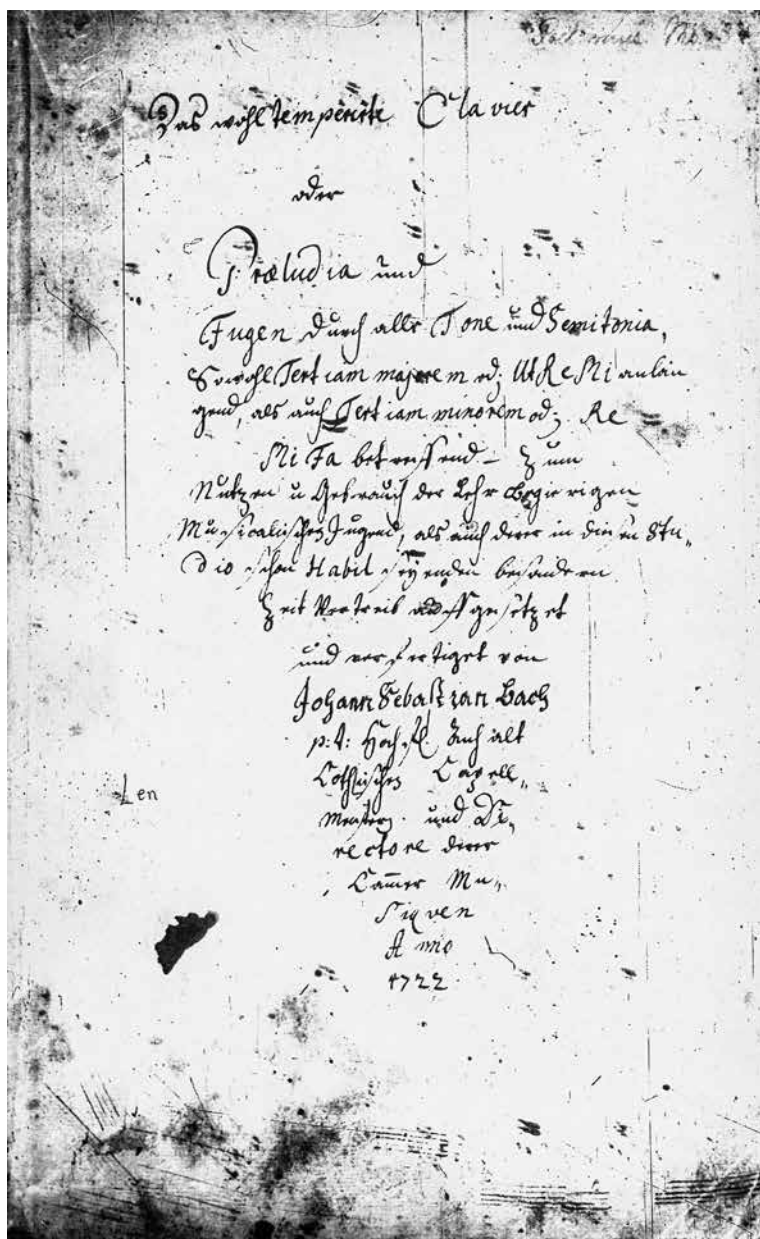 Das wohl temperirte Clavier
oder
Præludia und
Fugen durch alle Tone und Semitonia,
Sowohl Tertiam majorem od; Ut Re Mi anlan
gend, als auch Tertiam minorem od; Re
Mi Fa betreffend – Zum
Nutzen u Gebrauch der Lehr Begierigen
Musicalischen Jugend, als auch derer in diesen Stu„
dio schon Habil seyenden besondern
Zeit Vertreib auffgesetzet
und verfertiget von
Johann Sebastian Bach
p: t: Hochfl. Anhalt
Cöthnischen Capell„
Len
Meistern. und Di„
rectore derer
Cam̅er Mu„
siqven
Anno
1722.